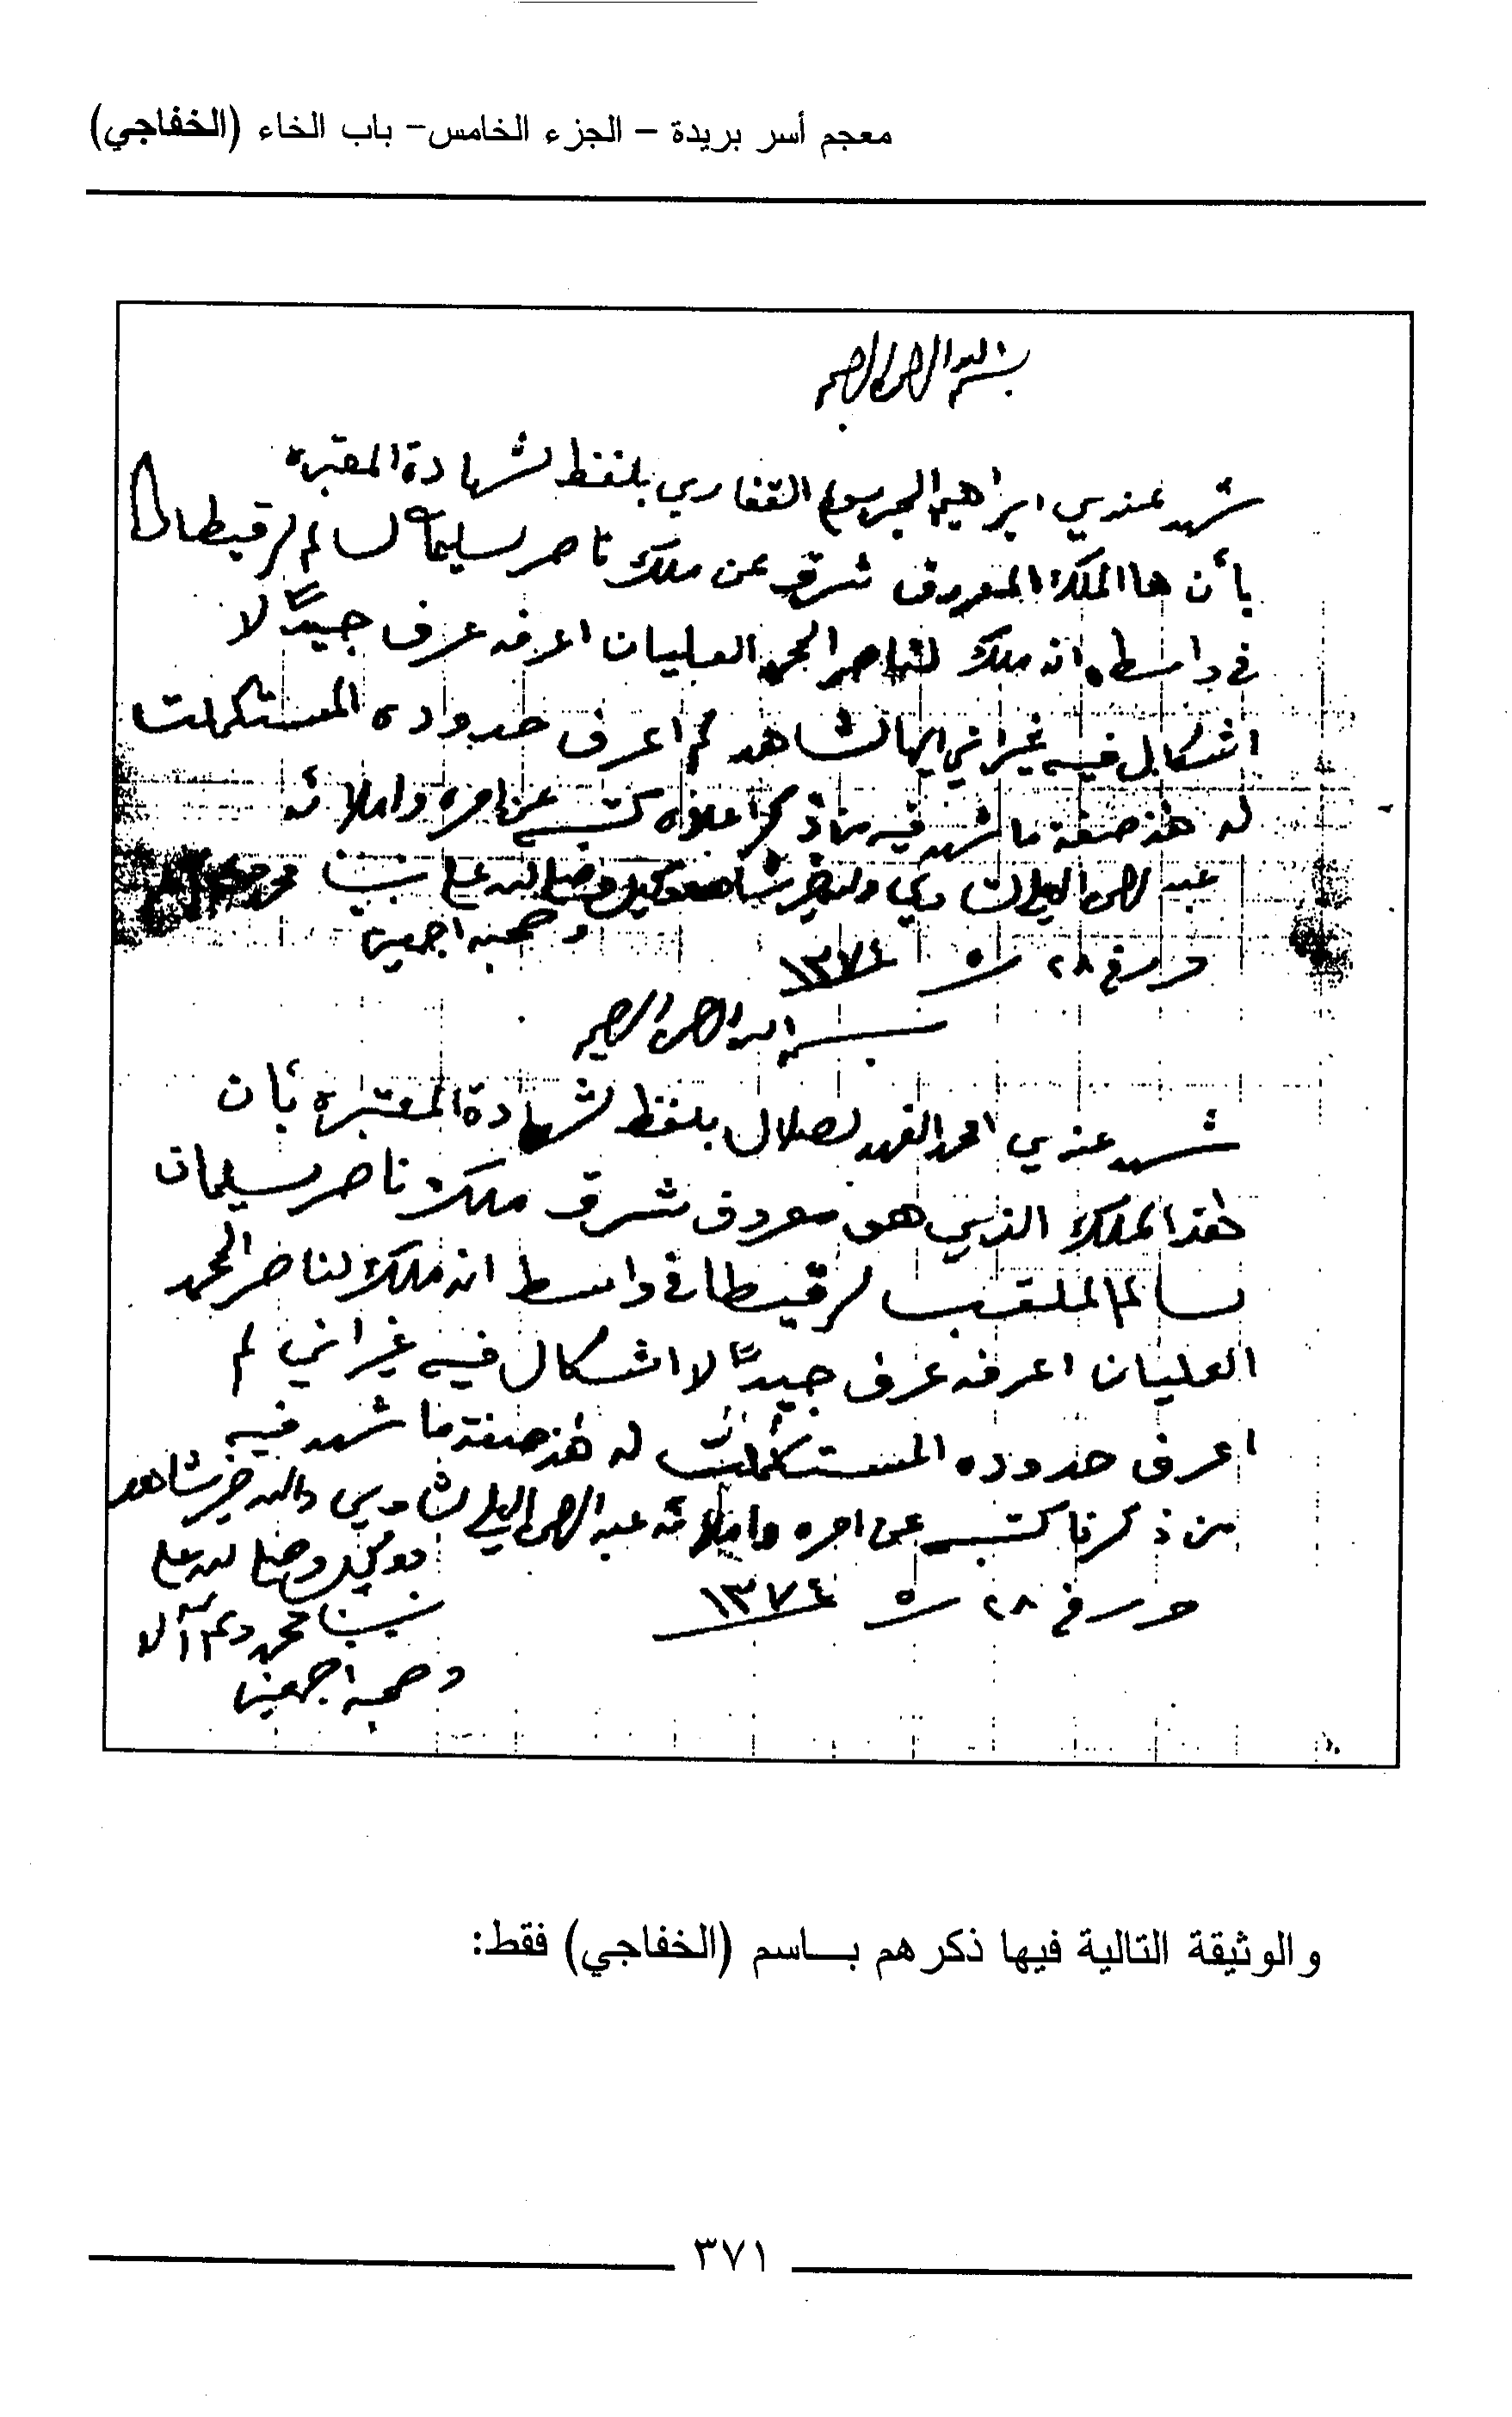 معجم أسر بريدة – الجزء الخامس– باب الخاء (الخفاجي)
بسم الله الرحمن الرحيم
شهد عندي ابراهيم القفاري بلفظ لشهادة المعتبره
بأن هاالملك المعروف شرق عن ملك ناصر سليمان لسالم
في واسط انه ملك لناصر الحمد العليان اعرفه عرف جيدًا لا
اشكال فيه غير اني لم اعرف حدوده المستكملت
له هذ صفة ما شهد فيه من ذكر اعلاه كتبه عن امره واملائه
عبد الرحمن والله خير شاهد ووكيل وصلى الله على نبينا محمد
وصحبه اجمعين
حرر في ٢٨ ش ٥ ١٣٧٤
بسم الله الرحمن الرحيم
شهد عندي احمد الفهد لصلال بلفظ لشهادة المعتبره بأن
هذا الملك الذي هو معروف شرق ملك ناصر سليمان
سالم الملقب في واسط انه ملك لناصر الحمد
العليان اعرفه عرف جيدًا لا اشكال فيه غير اني لم
اعرف حدوده المستكملت له هذ صفة ما شهد فيه
من ذكرنا كتبه عن امره واملائه عبد الرحمن والله خير شاهد
ووكيل وصلى الله على
نبينا محمد وعلى آله
وصحبه اجمعين
حرر في ٢٨ ش ٥ ١٣٧٤
والوثيقة التالية فيها ذكرهم باسم (الخفاجي) فقط:
٣٧١